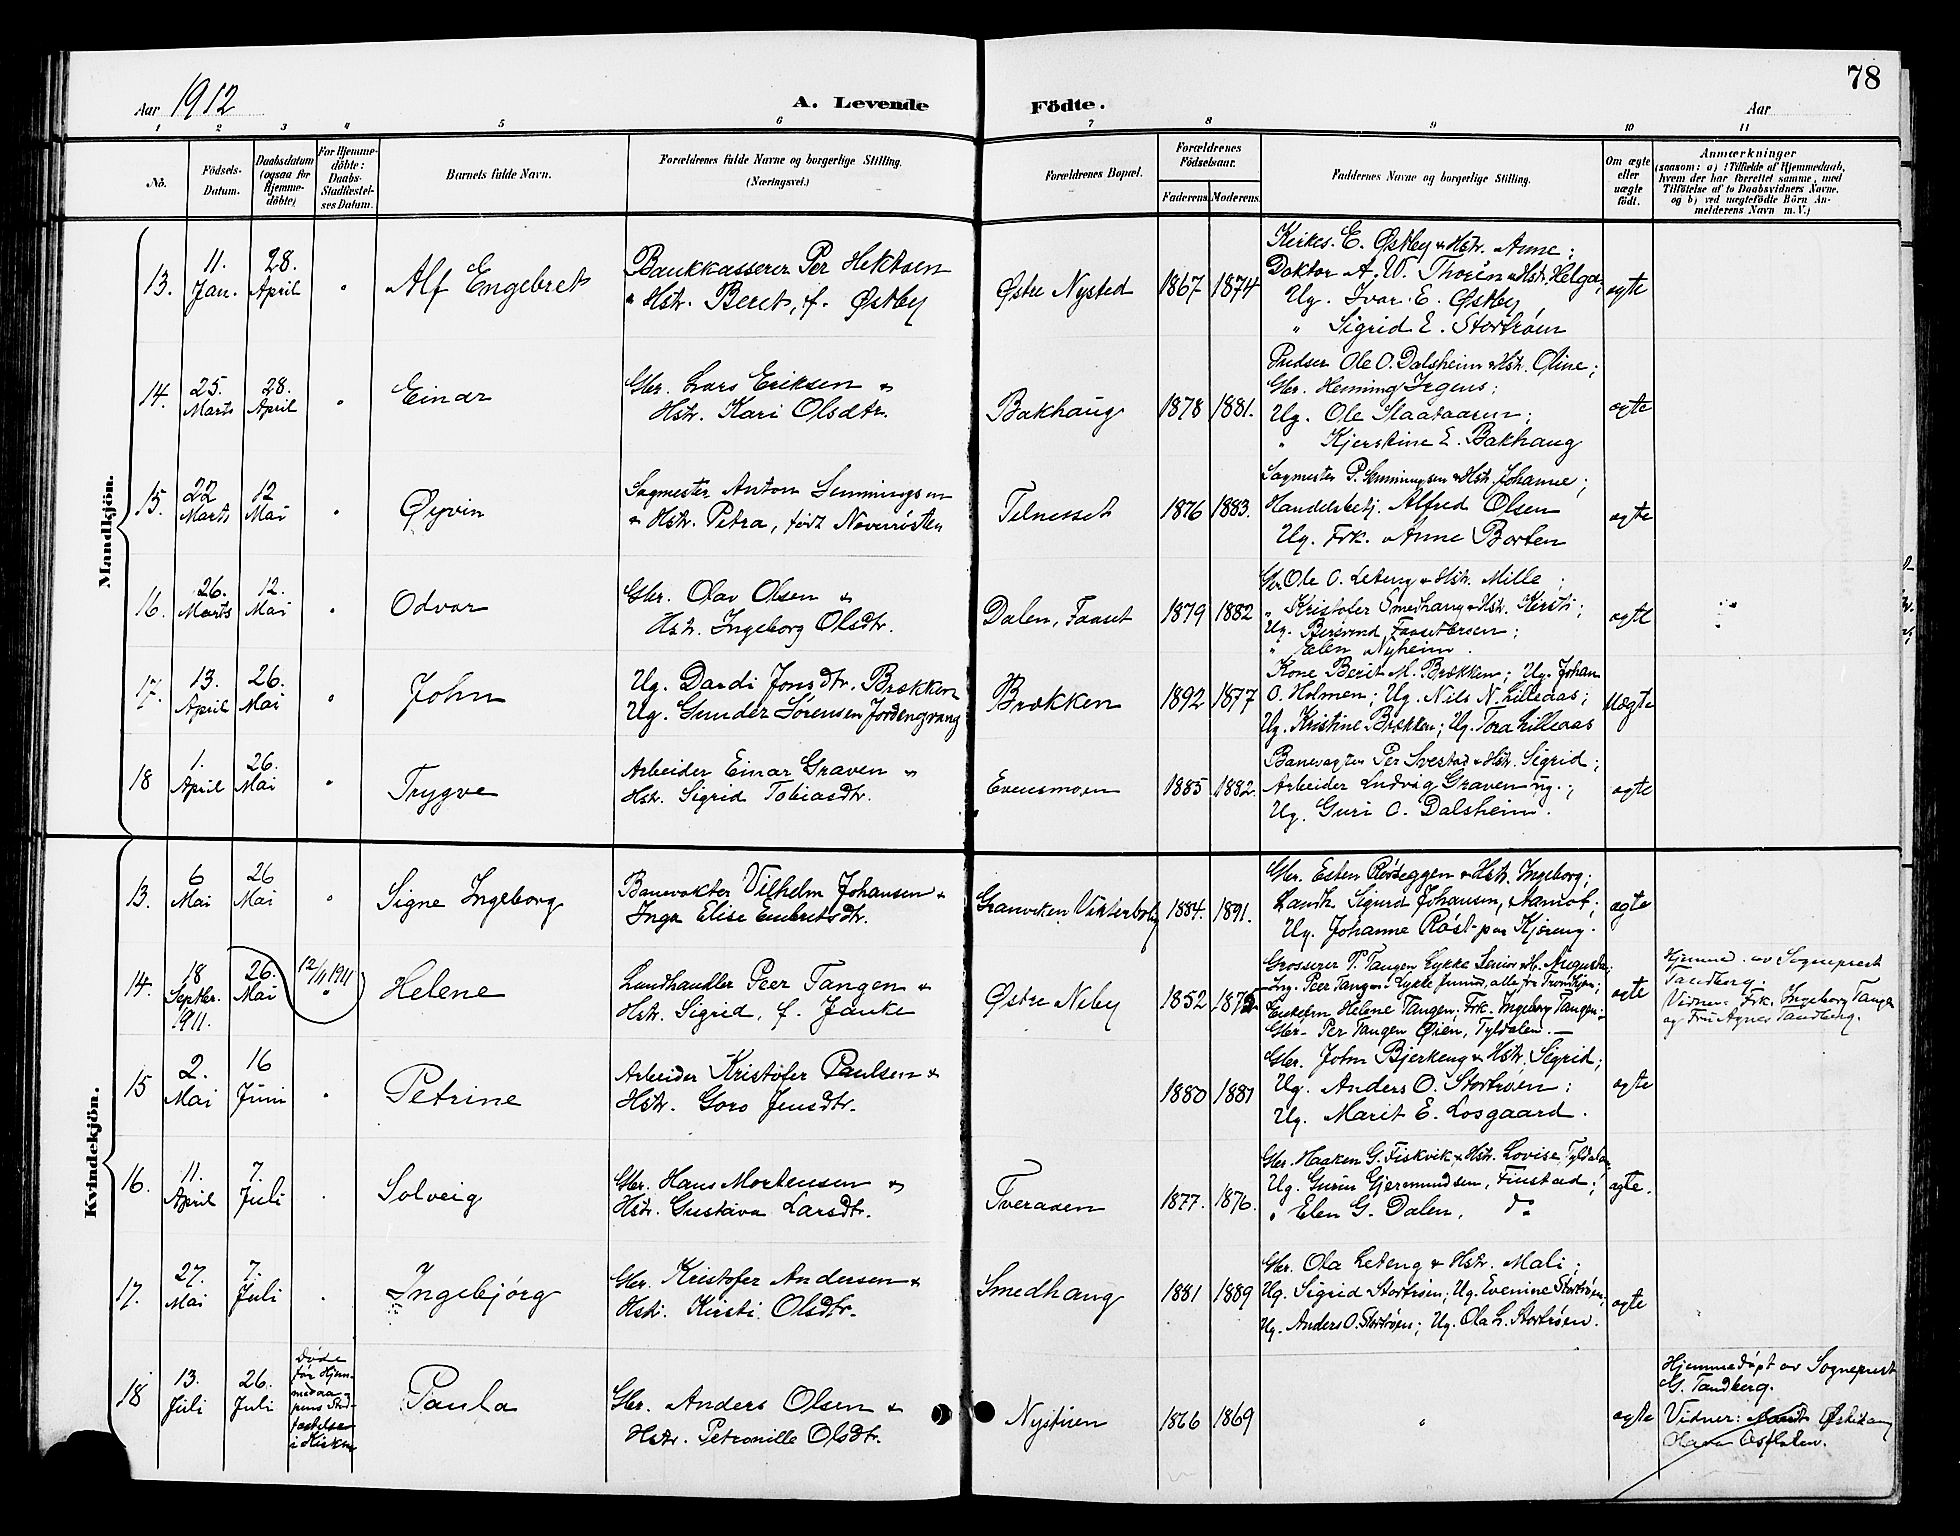 78
Aar 1912
A. Levende Födte.
Aar
1 2 3 4 5 6 7 8 9 10 11
No.
Födsels-Datum.
Daabsdatum (ogsaa for Hjemme-döbte)
For Hjemme-döbte: Daabs-Stadfæstel-ses Datum.
Barnets fulde Navn.
Forældrenes fulde Navne og borgerlige Stilling.
(Næringsvei.)
Forældrenes Bopæl.
Forældrenes Födselsaar.
Faderens. Moderens.
Faddernes Navne og borgerlige Stilling.
Om ægte eller uægte födt.
Anmærkninger
(saasom: a) i Tilfælde af Hjemmedaab,
hvem der har forrettet samme, med
Tilföielse af to Daabsvidners Navne.
og b) ved uægtefödte Börn An-
melderens Navn m. V.)
Mandkjön.
13. 11. Jan. 28. April " Alf Engebret
Bankkasserer Per Hektoen
" Hstr. Beret, f. Østby
Østre Nysted 1867 1874
Kirkes. E. Østby & Hstr. Anne;
Doktor A. W. Thorén & Hstr. Helga;
Ug. Ivar E. Østby
" Sigrid E. Stortrøen
ægte
14. 25. Marts 28. April " Einar
Gbr. Lars Eriksen &
Hstr. Kari Olsdtr.
Bakhaug 1878 1881.
Pudser Ole O. Dalsheim & Hstr. Oline;
Gbr. Henning Irgens;
Ug. Ole Slaataasen;
" Kjerstine E. Bakhaug
ægte
15. 22 Marts 12 Mai " Øyvin
Sagmester Anton Semmingsen
& Hstr. Petra, født Noverrøsten
Telnesset 1876 1883.
Sagmester P. Semmingsen & Hstr. Johanne;
Handelsbetj. Alfred Olsen
Ug. Frk. Anne Borten
ægte
16. 26. Marts 12. Mai " Odvar
Gbr. Olav Olsen &
Hstr. Ingeborg Olsdtr.
Dalen, Faaset 1879 1882
Gbr. Ole O. Leteng & Hstr. Mille;
" Kristofer Smedhaug & Hstr. Kirsti;
Ug. Faasetørsen;
" Elen Nyheim.
ægte
17. 13. April 26. Mai " John
Ug. Dardi Jonsdtr. Brækken
Ug. Gunder Sørensen Jordengvang
Brækken 1892 1877
Kone Berit M. Brækken; Ug. Johan
O. Holmen; Ug. Nils N. Lilleaas;
Ug. Kristine Brækken; Ug. Tora Lilleaas
Uægte
18 1. April 26. Mai " Trygve
Arbeider Einar Graven &
Hstr. Sigrid Tobiasdtr.
Evensmoen 1885 1882.
Banevagten Per Svestad & Hstr. Sigrid;
Arbeider Ludvig Graven ug.;
Ug. Guri O. Dalsheim.
ægte
Kvindekjön.
13. 6 Mai 26 Mai " Signe Ingeborg
Banevokter Vilhelm Johansen &
Inga Elise Embretsdtr.
Granviken Vikterbolig 1884. 1891.
Gbr. Esten Rørseggen & Hstr. Ingeborg;
Landh. Sigurd Johansen, Aamot;
Ug. Johanne Røst paa Kjøreng.
ægte
14. 18 Septbr. 1911. 26. Mai 12/11 1911 " Helene
Landhandler Peer Tangen &
Hstr. Sigrid, f. Janke
Østre Neby 1852 1875
Grosserer P. Tangen Lykke Senior & H. Augusta;
Ing. Peer Tangen Lykke junior, alle fra Trondhjem;
Enkefru Helene Tangen; Frk. Ingeborg Tangen;
Gbr. Per Tangen Øien, Tyldalen.
ægte
Hjemme. av Sogneprest
Tandberg:
Vidner: Frk. Ingeborg Tangen
og Fru Agnes Tandberg.
15 2. Mai 16 Juni " Petrine
Arbeider Kristofer Paulsen &
Hstr. Goro Jensdtr.
1880 1881
Gbr. John Bjerkeng & Hstr. Sigrid;
Ug. Anders O. Stortrøen;
Ug. Marit E. Losgaard.
ægte
16. 11. April 7. Juli " Solveig
Gbr. Hans Mortensen &
Hstr. Gustava Larsdtr.
Tveraaen 1877. 1876.
Gbr. Haaken G. Fiskvik & Hstr. Lovise Tyldalen;
Ug. Gurin Gjermundsen, Finstad;
" Elen G. Dalen, do
ægte.
17. 27. Mai 7. Juli " Ingebjörg
Gbr. Kristofer Andersen &
Hstr. Kirsti Olsdtr.
Smedhaug 1881 1889
Gbr. Ola Leteng & Hstr. Mali;
Ug. Sigrid Stortrøen; Ug. Evenine Stortrøen;
Ug. Anders O. Stortrøen; Ug. Ola L. Stortrøen.
ægte
18 13. Juli 26. Juli
Døde
før Hjem-
medaa-
pens Stad-
fæstelse
i Kirken
Paula
Gbr. Anders Olsen &
Hstr. Petronille Olsdtr.
Nystuen 1866 1869
"
ægte
Hjemmedøpt av Sogneprest
G. Tandberg.
Vidner: Marit